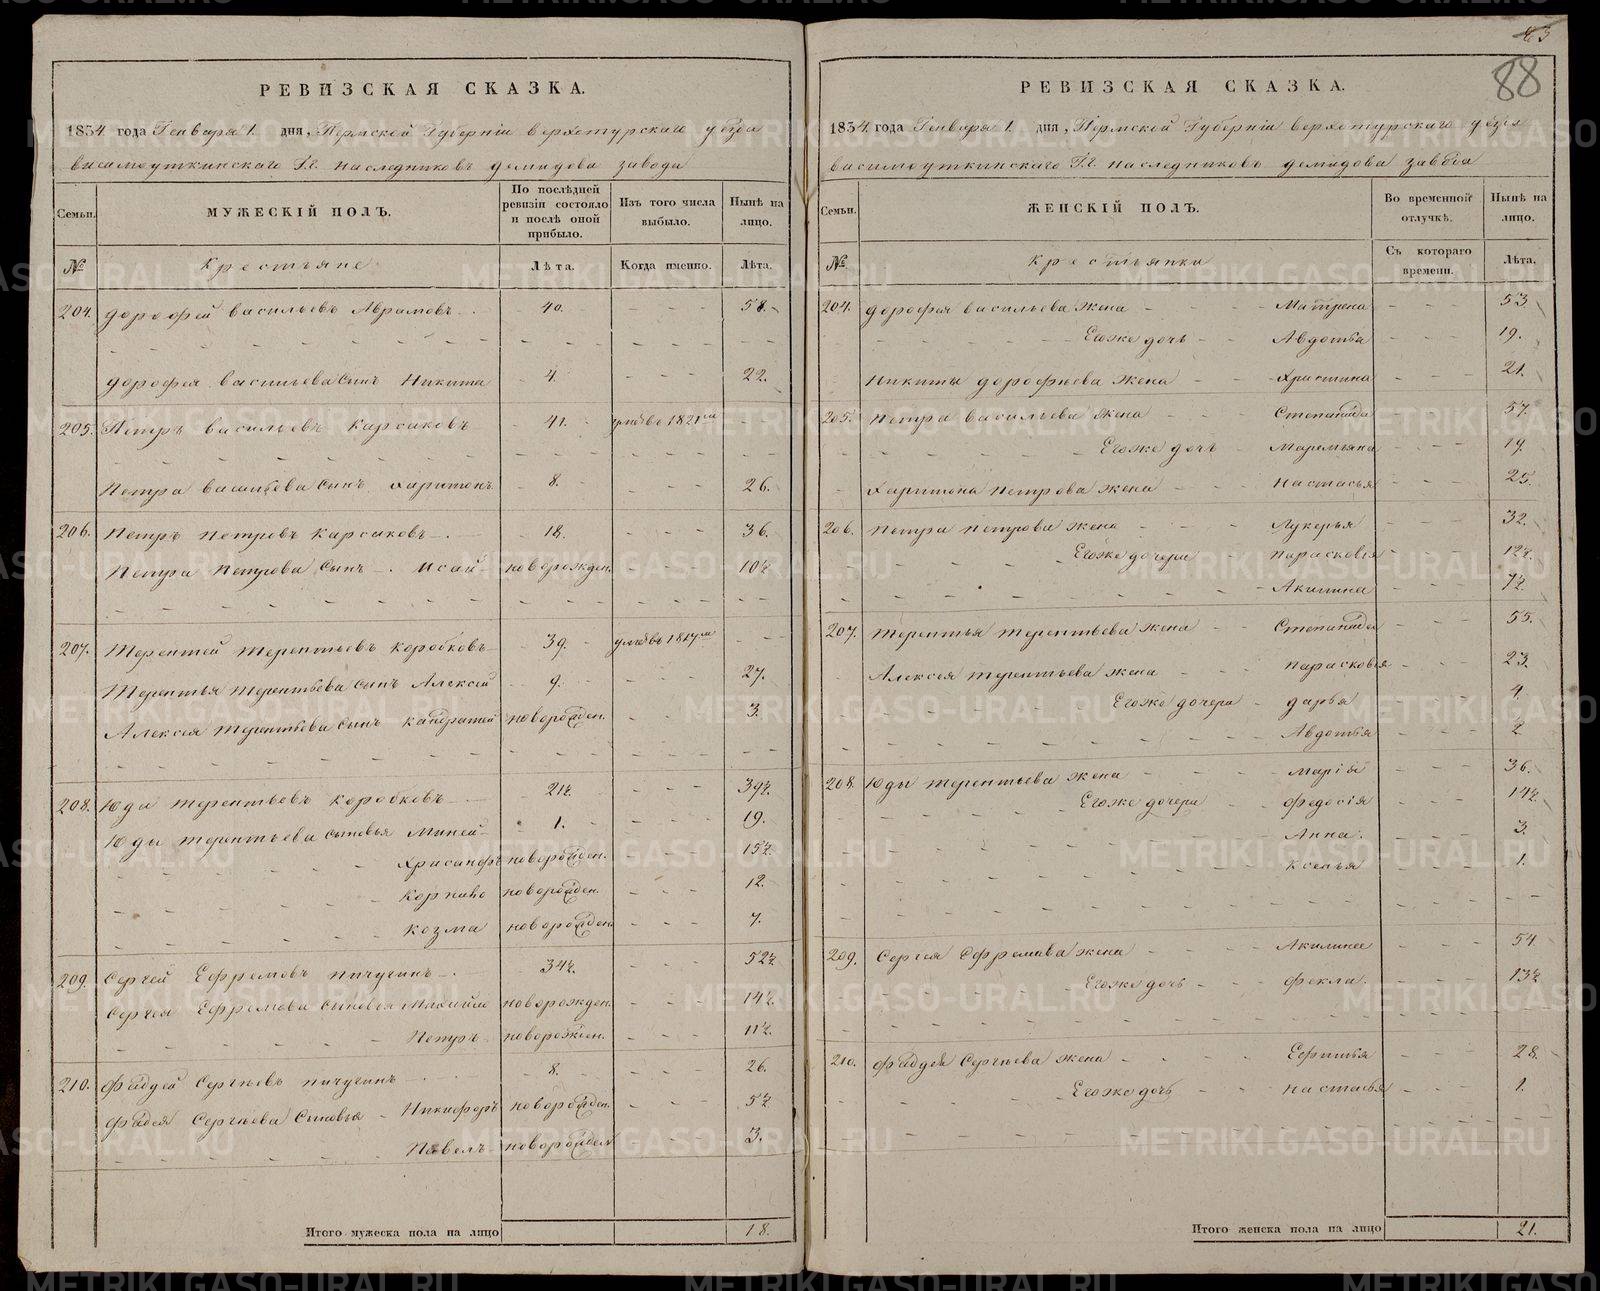 43
88
РЕВИЗСКАЯ СКАЗКА.
1834 года Генваря 1. дня, Пермской Губерніи верхотурскаго уѣзда
висимоуткинскаго Г.г. наследниковъ демидова завода
Семьи.
МУЖЕСКІЙ ПОЛЪ.
По послѣдней ревизіи состояло и послѣ оной прибыло.
Изъ того числа выбыло.
Нынѣ на лицо.
№
Крестьяне
Лѣта.
Когда именно.
Лѣта.
204. дорофей васильевъ Аврамовъ 40. 58.
дорофея васильева сынъ Никита 4. 22.
205. Петръ васильевъ Карсаковъ 41. умѣ въ 1821мъ
Петра васильева сынъ харитонъ 8. 26.
206. Петръ петровъ Карсаковъ 18. 36.
Петра петрова сынъ Исай новорожден. 10½
207. терентей терентьевъ коробковъ 39. умѣ въ 1817мъ
терентья терентьева сынъ Алексей 9. 27.
Алексея терентьева сынъ кандратей новорожден. 3.
208. Юда терентьевъ коробковъ 21½. 39½.
Юды терентьева сыновья Миней 1. 19.
Хрисанфъ новорожден. 15½
Корнило новорожден. 12.
козма новорожден. 7.
209. Сергей Ефремовъ пичугинъ 34½. 52½
Сергея Ефремова сыновья Михайло новорожден. 14½.
Петръ новорожден. 11½.
210. Фадей Сергѣевъ пичугинъ 8. 26.
Фадея Сергѣева сыновья Никифоръ новорожден. 5½
Павелъ новорожден 3.
Итого мужеска пола на лицо 18.
РЕВИЗСКАЯ СКАЗКА.
1834. года Генваря 1. дня, Пермской Губерніи верхотурскаго уѣзда
висимоуткинскаго Г.г. наследниковъ демидова завода
Семьи.
ЖЕНСКІЙ ПОЛЪ.
Во временной отлучкѣ.
Нынѣ на лицо.
№
крестьянки
Съ котораго времени.
Лѣта.
204. дорофея васильева жена Матрена 53.
Егоже дочь Авдотья 19.
Никиты дорофѣева жена Христина 21.
205. Петра васильева жена Степанида 57.
Егоже дочь Маремьяна 19.
харитона петрова жена настасья 25.
206. петра петрова жена Лукерья 32.
Егоже дочери парасковья 12½.
Акилина 7½.
207. терентья терентьева жена Степанида 55.
Алексея терентьева жена парасковья 23.
Егоже дочери дарья 4.
Авдотья 2
208. Юды терентьева жена марія 36.
Егоже дочери федосія 14½.
Анна. 3.
ксенья 1.
209. Сергея Ефремова жена Акилина 54.
Егоже дочь фекла. 13½
210. фадея Сергѣева жена Ефимья 28.
Егоже дочь настасья 1.
Итого женска пола на лицо 21.
METRIKI.GASO-URAL.RU